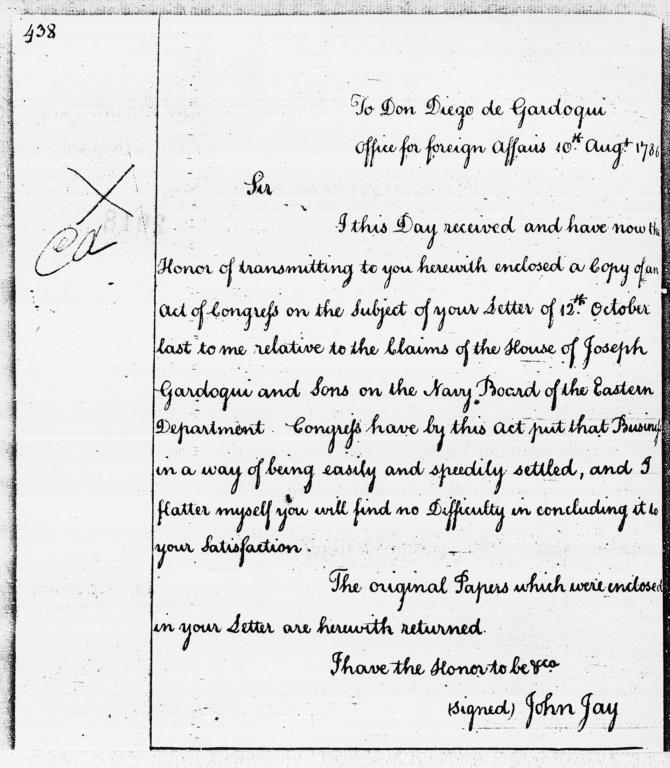 438
To Don Diego de Gardoqui
Office for foreign Affairs 10th Augt 1786
Sir
I this Day received and have now the
Honor of transmitting to you herewith enclosed a Copy of an
Act of Congress on the Subject of your Letter of 12th October
last to me relative to the Claims of the House of Joseph
Gardoqui and Sons on the Navy Board of the Eastern
Department. Congress have by this Act put that Business
in a way of being easily and speedily settled, and I
flatter myself you will find no Difficulty in concluding it to
your Satisfaction.
The original Papers which were enclosed
in your Letter are herewith returned.
I have the Honor to be &ca
(signed) John Jay